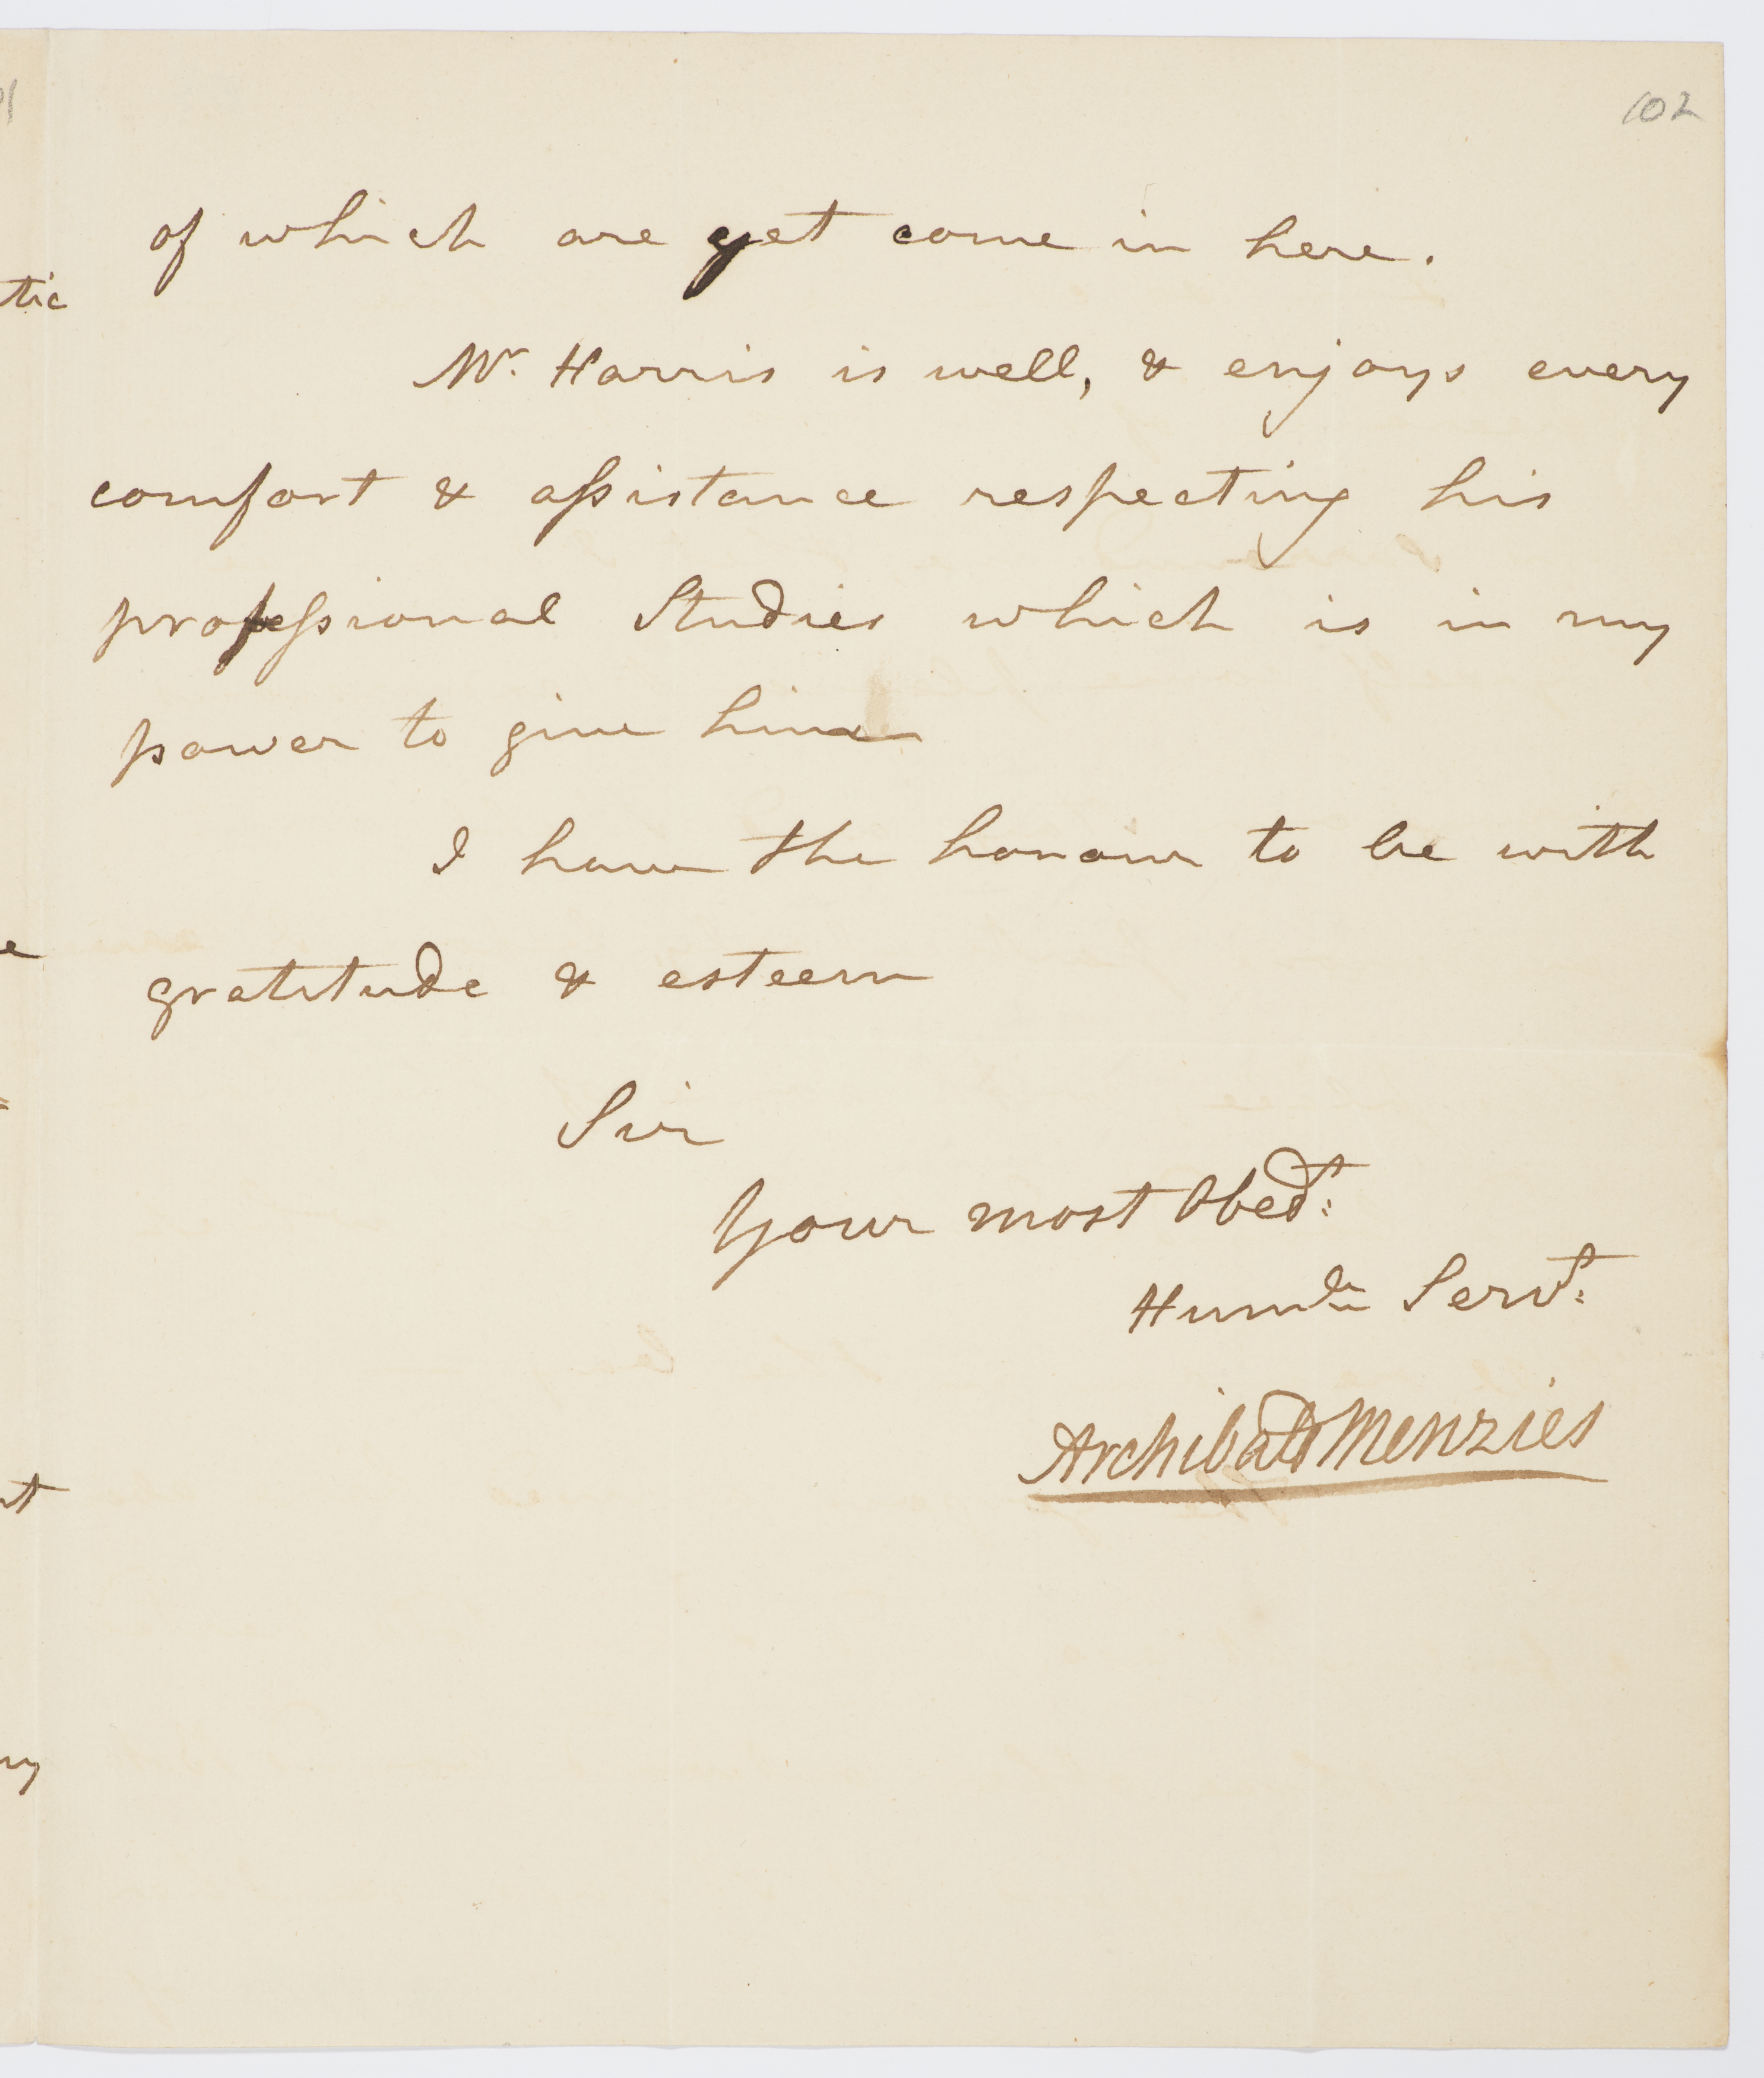 102
of which are yet come in here.
Mr. Harris is well, & enjoys every
comfort & aſsistance respecting his
profeſsional Studies which is in my
power to give him
I have the honour to be with
gratitude & esteem
Sir
Your most Obedt:
Humle Servt:
Archibald Menzies
tic